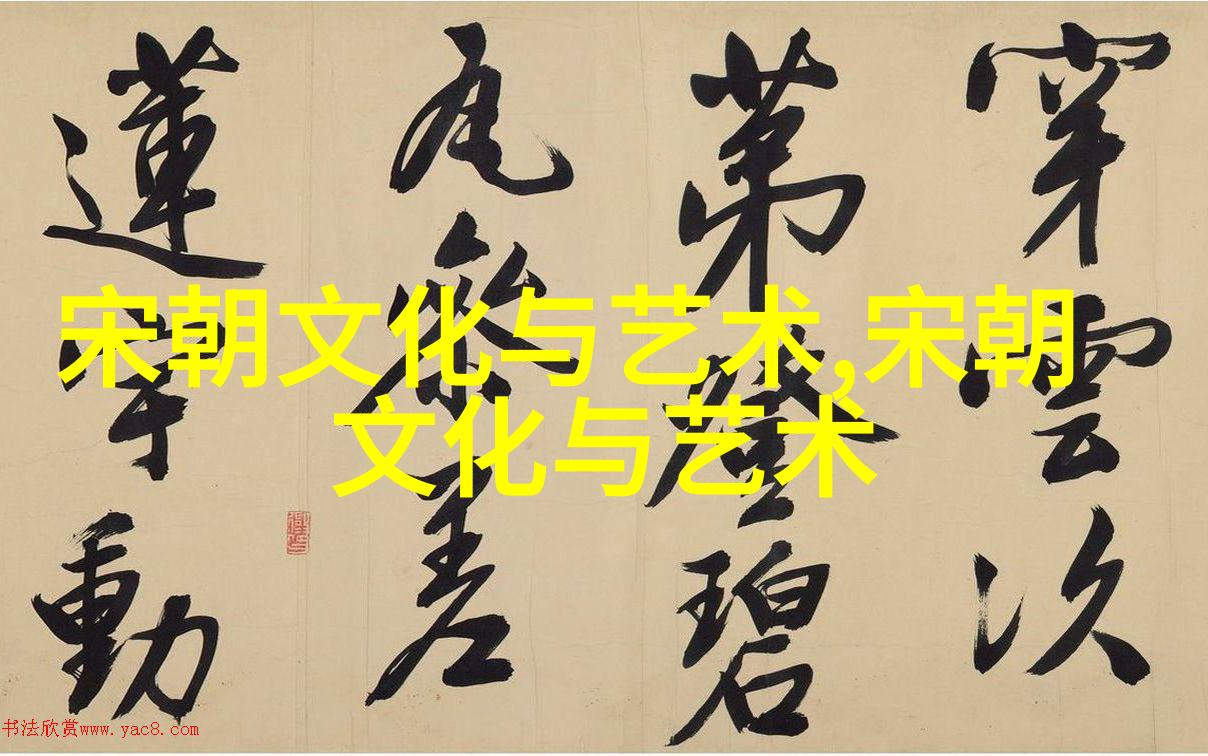 穿雲次
第碧
瓦參差
蓮宇動
宋朝文化与艺术,宋朝
文化与艺术
书法欣赏www.yac8.com